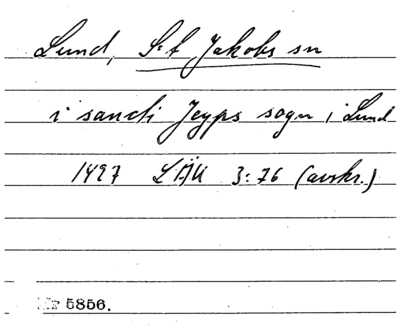 Lund, S:t Jakobs sn
i sancti Jeyps sogn i Lund
1497 LÄU 3:76 (avskr.)
Nr 5856.